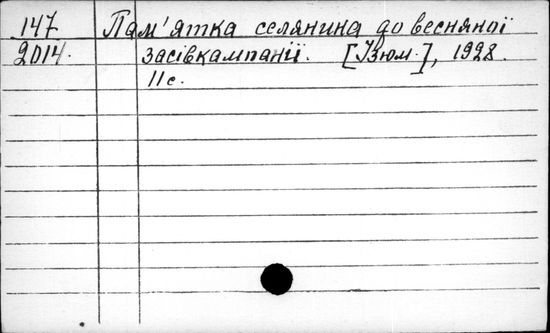 147 Пам'ятка селянина до весняної
2014. засівкампанії. [Ізюм.], 1928.
11 с.